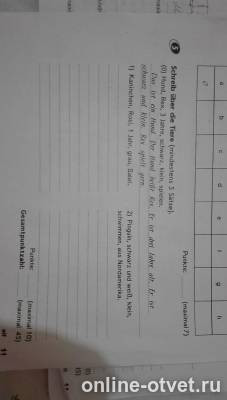 a b c d e f g h
Punkte: (maximal 7)
5 Schreib über die Tiere (mindestens 5 Sätze).
(0) Hund, Rex, 3 Jahre, schwarz, klein, spielen.
Das ist ein Hund. Der Hund heißt Rex. Er ist drei Jahre alt. Er ist
schwarz und klein. Rex spielt gern.
1) Kaninchen, Rosi, 1 Jahr, grau, Salat.
2) Pinguin, schwarz und weiß, klein,
schwimmen, aus Nordamerika.
Punkte: (maximal 10)
Gesamtpunktzahl: (maximal 45)
11
online-otvet.ru